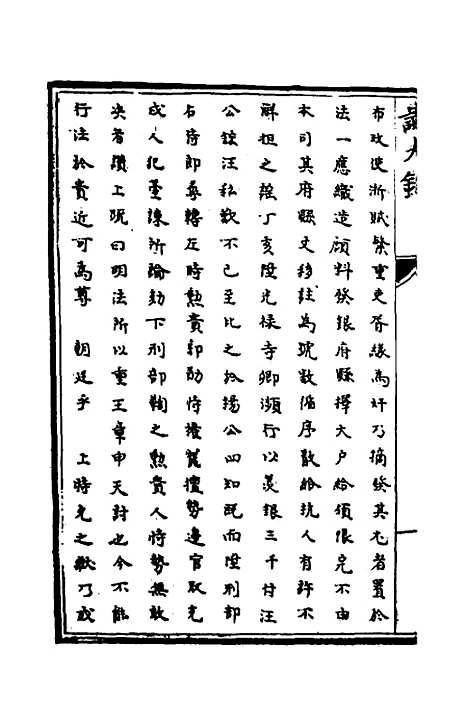 布政使浙賦繁重吏胥緣為奸乃摘發其尤者置於
法一應織造顏料發銀府縣擇大戶給領俵完不由
本司其府縣文移註為號數循序散給杭人有許不
解担之謠丁亥陞光祿寺卿瀕行以羨銀三千付汪
公鋐汪私歎不已至比之於揚公四知既而陞刑部
右侍郎尋轉左時勲貴郭勛恃權寵擅勢邊官取充
成人犯臺諫所論劾下刑部鞫之勲貴人恃勢無敢
決者瓚上疏曰明法所以重王章申天討也今不能
行法於貴近可為尊　朝廷乎　上時允之獄乃成